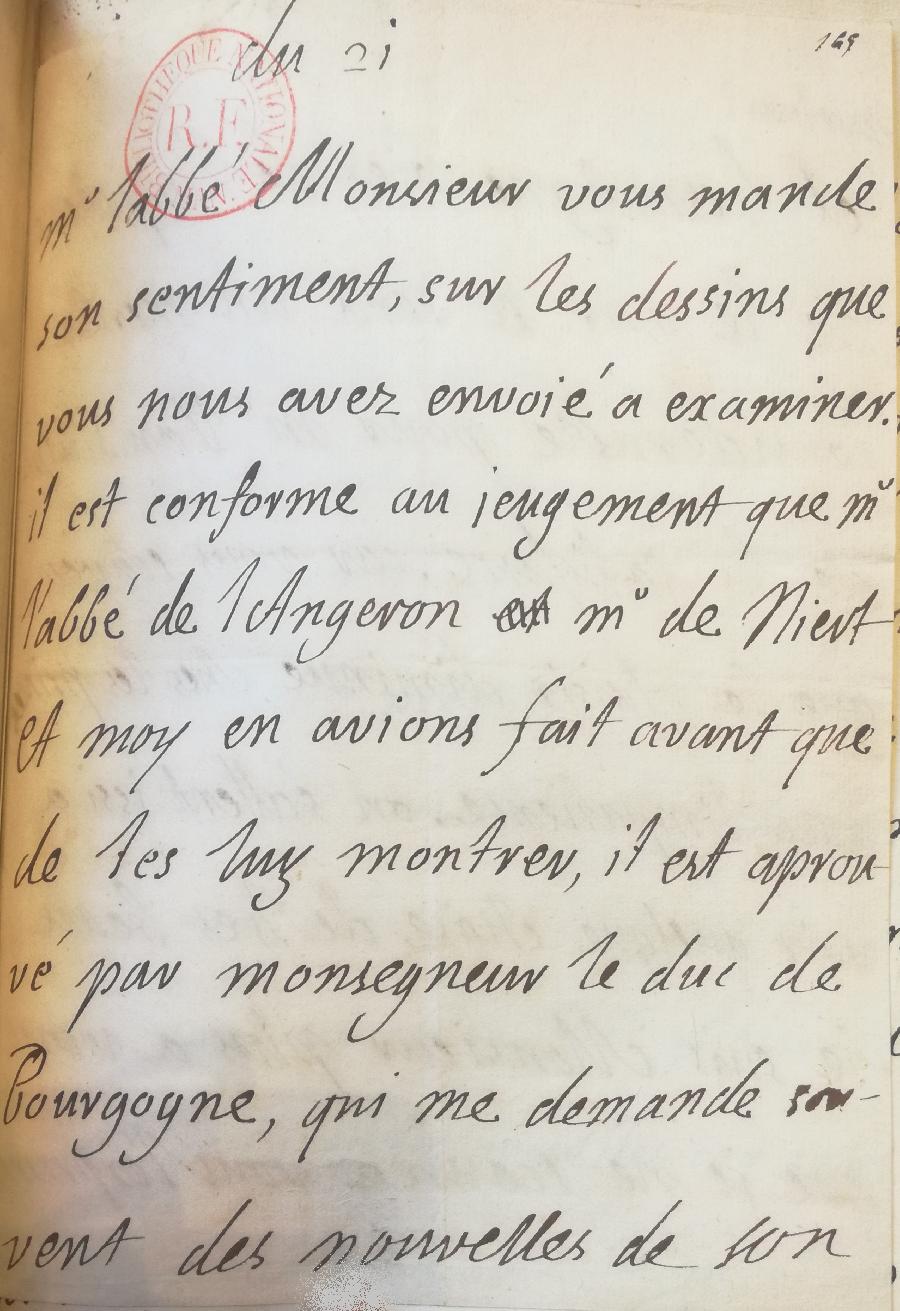 169
du 21
BIBLIOTHEQUE NATIONALE
R.F.
mr l'abbé Monsieur vous mande
son sentiment, sur les dessins que
vous nous avez envoié a examiner.
il est conforme au jeugement que mr
l'abbé de l'Angeron et mr de Niert
et moy en avions fait avant que
de les luy montrer, il est aprou
vé par monsegneur le duc de
Bourgogne, qui me demande sou-
vent des nouvelles de son